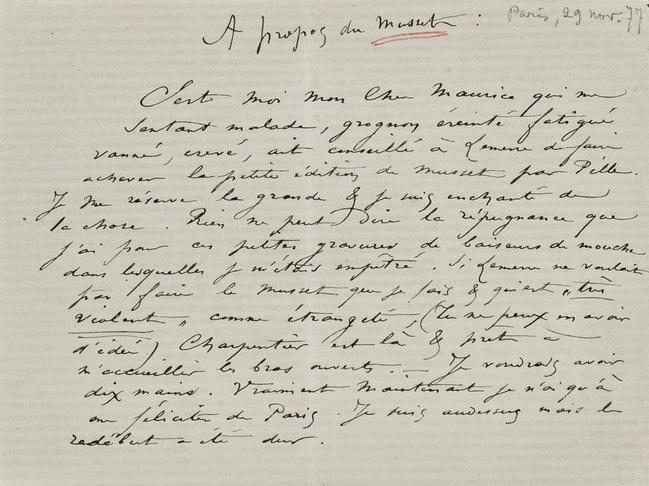 Paris, 29 nov. 77
A propos du Musset :
C'est moi mon cher Maurice qui me
sentant malade, grognon éreinté fatigué
vanné, crevé, ait conseillé à Lemerre de faire
achever la petite édition de Musset par Pille.
Je me réserve la grande & je suis enchanté de
la chose. Rien ne peut dire la répugnance que
j'ai pour ces petites gravures de baisers de mouche
dans lesquelles je m'étais empêtré. Si Lemerre ne voulait
pas faire le Musset que je fais & qui est "très
violent" comme étrangeté, (tu ne peux en avoir
d'idée) Charpentier est là & prêt à
m'accueillir les bras ouverts. - Je voudrais avoir
dix mains. Vraiment maintenant je n'ai qu'à
me féliciter de Paris. Je suis au dessus mais le
redébut a été dur.